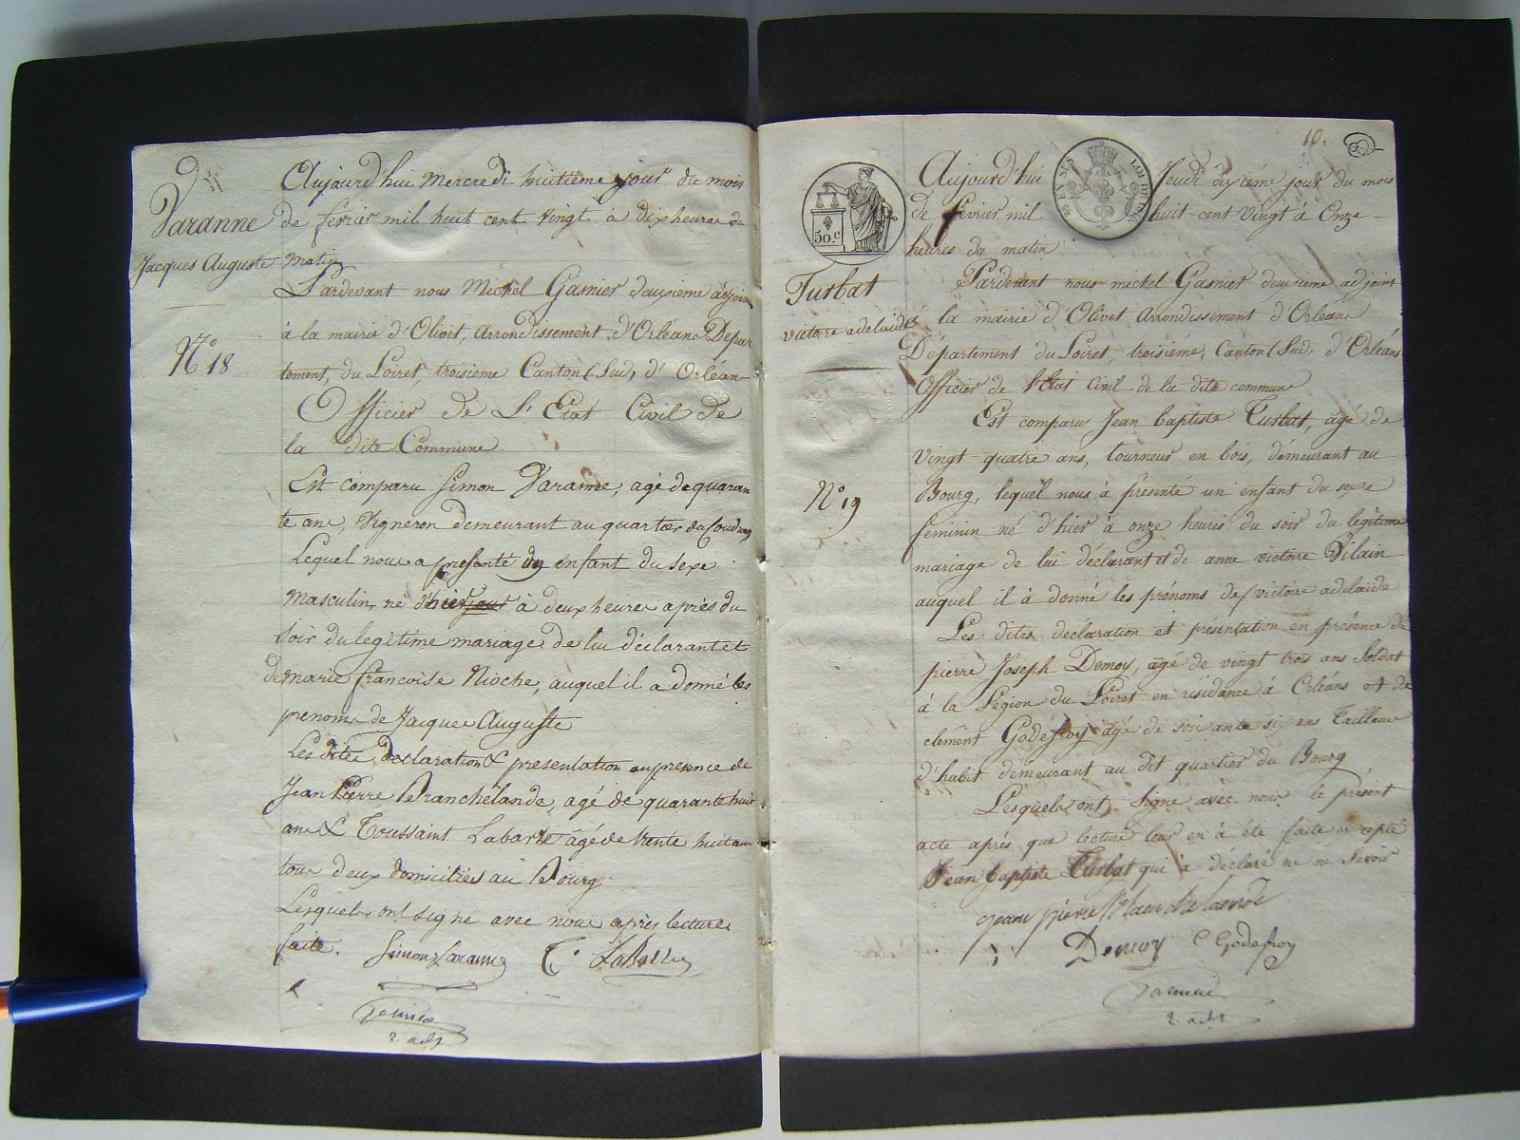 Varanne
Jacques Auguste
N° 18
Aujourd'hui mercredi huitieme jour du mois
de fevrier mil huit cent vingt à dix heures du
matin
Pardevant nous Michel Gasnier deuxieme adjoint
à la mairie d'Olivet, Arrondissement d'Orléans Depar
tement, du Loiret, troisième Canton (Sud) d'Orléans
Officier de L'Etat Civil de
la dite Commune
Est comparu Simon Varanne, agé de quaran
te ans, Vigneron demeurant au quartier du
Lequel nous a presenté un enfant du sexe
Masculin, né d'hier à deux heures après du
soir du legitime mariage de lui déclarant et
de marie francoise Nioche, auquel il a donné les
prenoms de Jacques Auguste
Les dites declaration & presentation en presence de
Jean Pierre Blanchelande, agé de quarante huit
ans & Toussaint Labarre agé de trente huit ans
tous deux domiciliés au Bourg
Lesquels ont signe avec nous après lecture
faite. Simon Varanne T.
Gasnier
2. adjt
10.
50.c
Turbat
victoire adelaide
N° 19
Aujourd'hui Jeudi dixième jour du mois
de fevrier mil huit-cent vingt à Onze
heures du matin
Pardevant nous michel Gasnier deuxieme adjoint
à la mairie d'Olivet Arrondissement d'Orléans
Département du Loiret, troisième, Canton (Sud) d'Orléans
Officier de l'Etat Civil de la dite commune
Est comparu Jean baptiste Turbat, agé de
Vingt-quatre ans, tourneur en bois, démeurant au
Bourg, lequel nous à presenté un enfant du sexe
feminin né d'hier à onze heures du soir du légitime
mariage de lui déclarant et de anne victoire Vilain
auquel il à donné les prénoms de victoire adelaide
Les dites declaration et présentation en présence de
pierre Joseph Demoy, agé de vingt trois ans Soldat
à la Légion du Loiret en résidance à Orléans et de
clement Godefroy agé de soixante six ans tailleur
d'habit démeurant au dit quartier du Bourg
Lesquels ont signé avec nous le présent
acte après que lecture leur en à été faite excepté
Jean baptiste Turbat qui à déclaré ne le savoir
jean pierre Blanchelande
Demoy C Godefroy
Gasnier
2. adjt